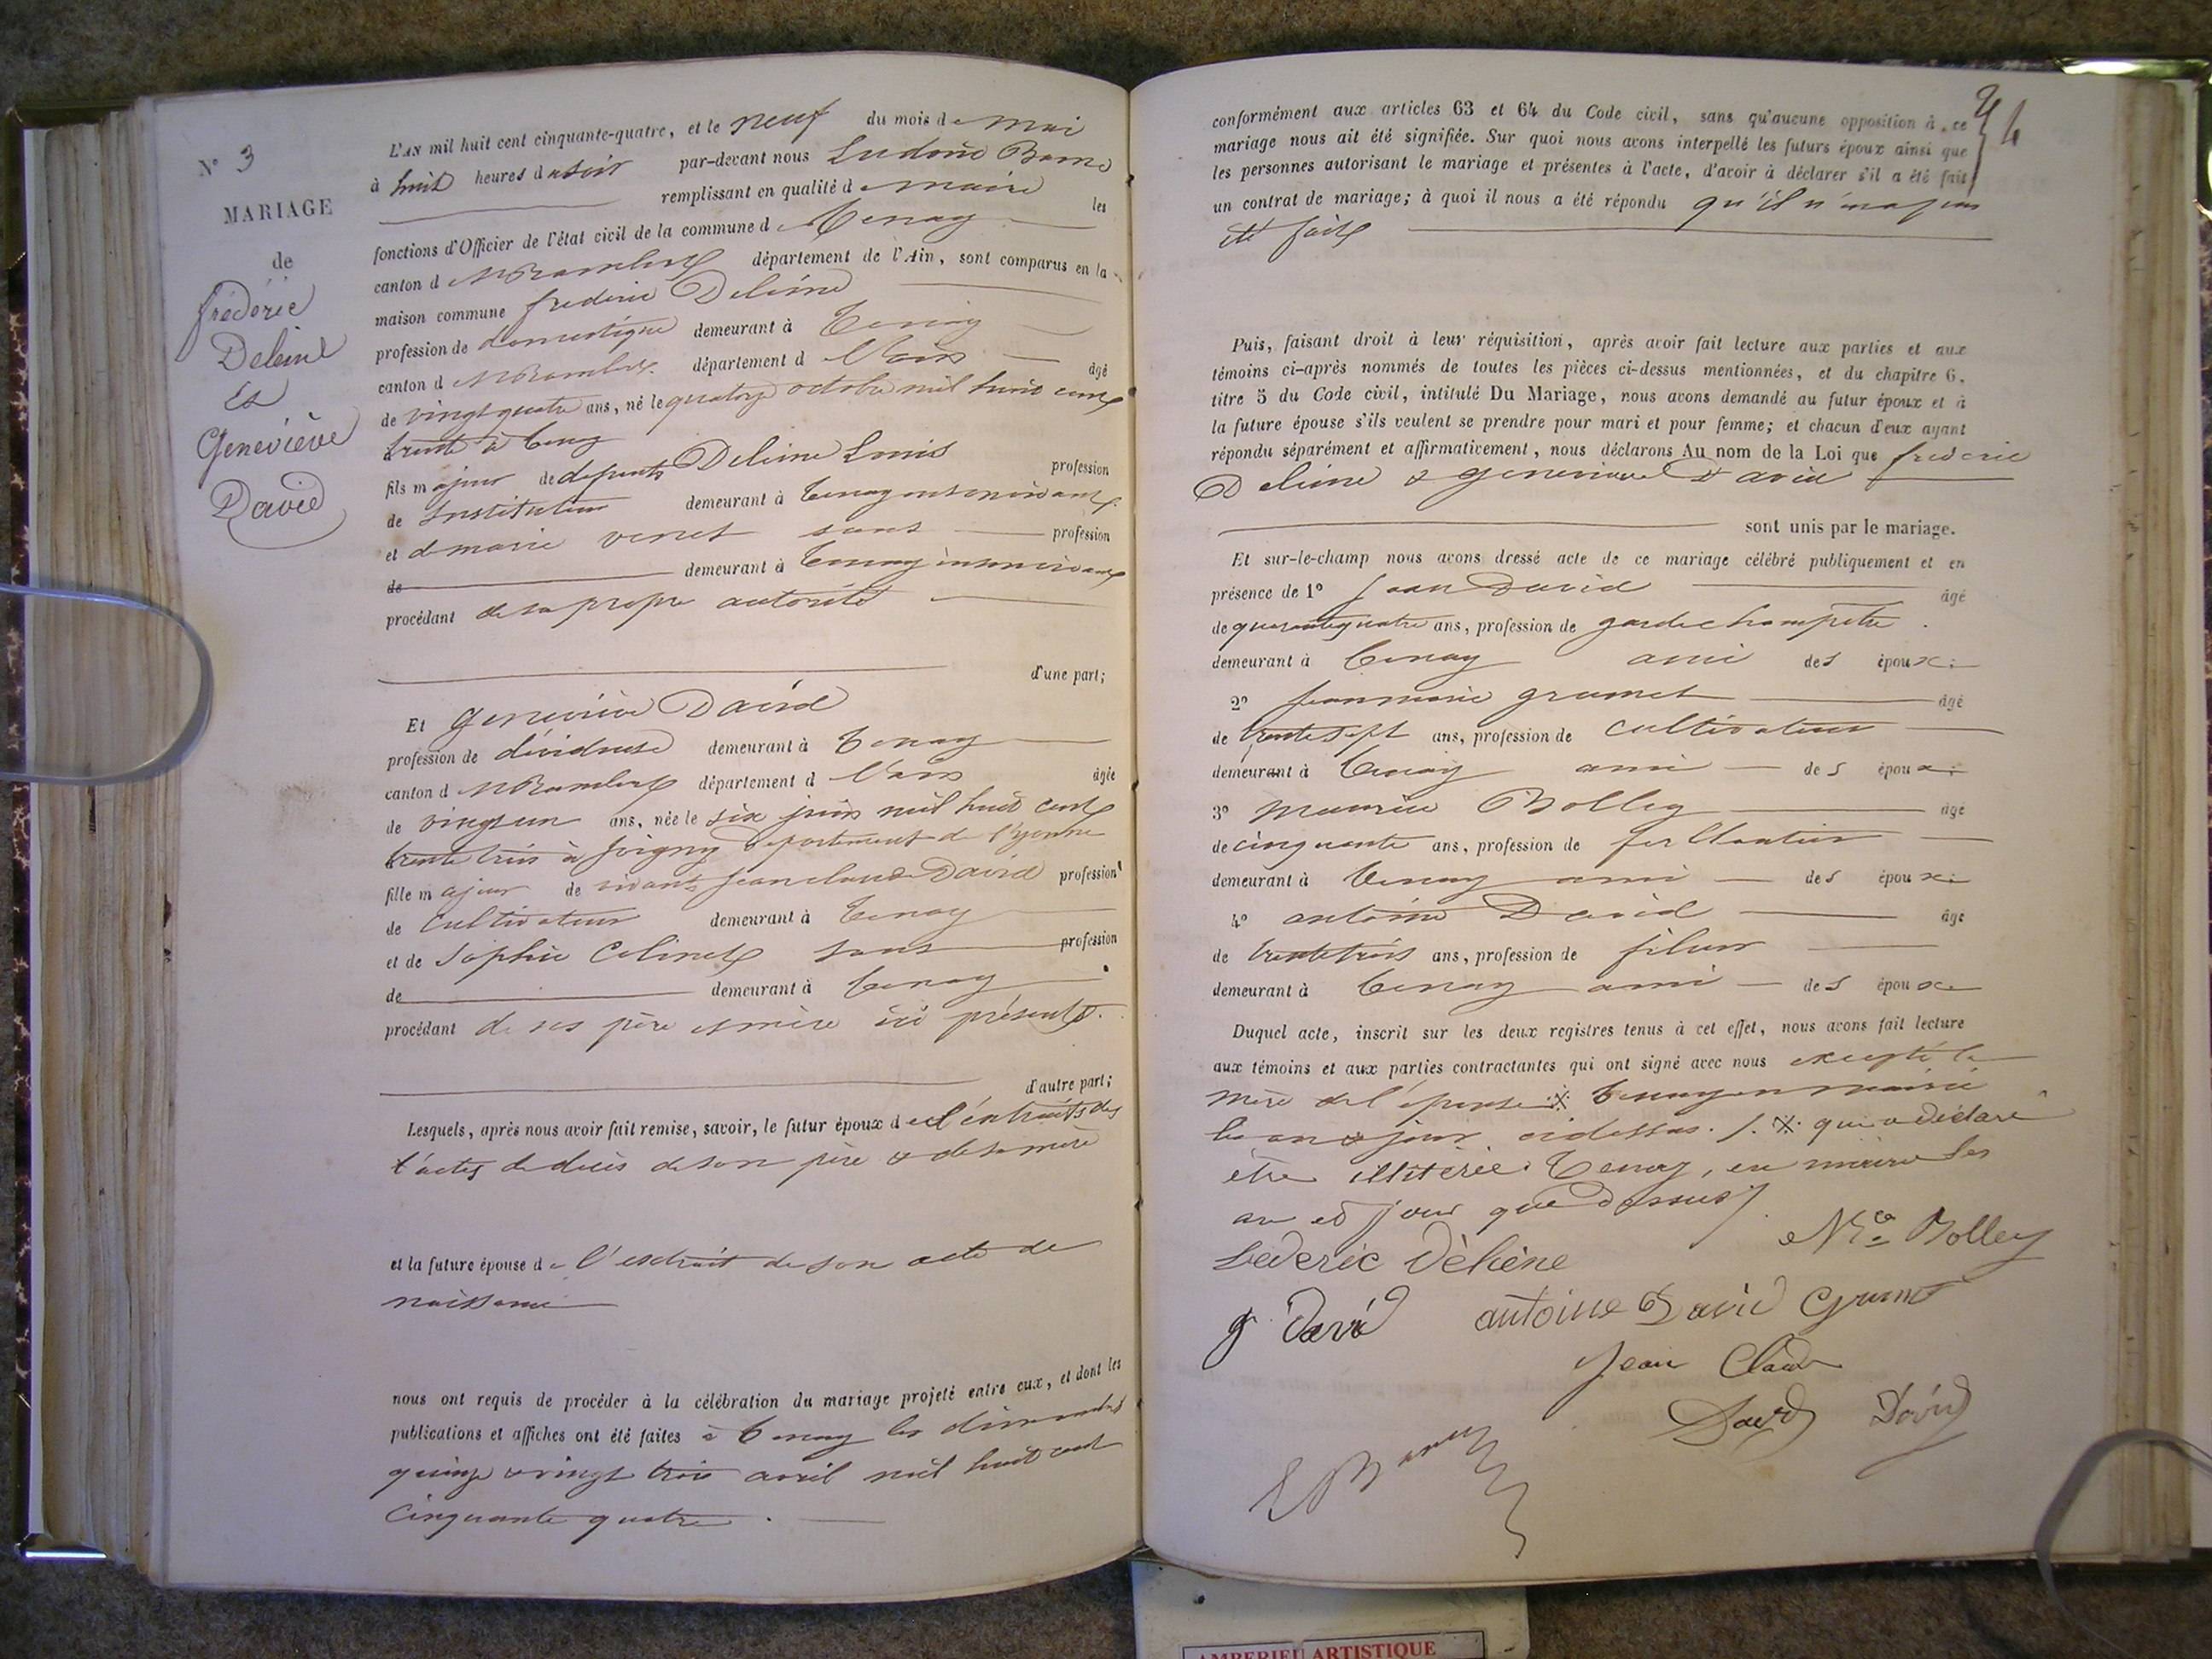 N° 3
MARIAGE
de
frédéric
Deleine
et
Geneviève
David
L'AN mil huit cent cinquante-quatre, et le neuf du mois de mai
à huit heures du soir par-devant nous Ludovic
remplissant en qualité de maire les
fonctions d'Officier de l'état civil de la commune d Tenay
canton d St Rambert département de l'Ain, sont comparus en la
maison commune frederic Deleine
profession de domestique demeurant à Tenay
canton d St Rambert département d l'ain âgé
de vingt quatre ans, né le quatorze octobre mil huit cent
trente à Tenay
fils majeur de defunts Deleine Louis profession
de Instituteur demeurant à Tenay en son vivant
et de marie venet sans profession
de demeurant à Tenay en son vivant
procédant de sa propre autorité
d'une part;
Et Geneviève David
profession de dévideuse demeurant à Tenay
canton d St Rambert département d l'ain âgée
de vingt un ans, née le six juin mil huit cent
trente trois à Joigny département de l'yonne
fille majeur de vivants Jean claude David profession
de cultivateur demeurant à Tenay
et de Sophie Colinet sans profession
de demeurant à Tenay
procédant de ses père et mère ici présents.
d'autre part;
Lesquels, après nous avoir fait remise, savoir, le futur époux d el'extraits des
l'actes de décès de son père & de sa mère
et la future épouse de l'extrait de son acte de
naissance
nous ont requis de procéder à la célébration du mariage projeté entre eux, et dont les
publications et affiches ont été faites à Tenay les dimanches
quinze & vingt trois avril mil huit cent
cinquante quatre.
conformément aux articles 63 et 64 du Code civil, sans qu'aucune opposition à ce
mariage nous ait été signifiée. Sur quoi nous avons interpellé les futurs époux ainsi que
les personnes autorisant le mariage et présentes à l'acte, d'avoir à déclarer s'il a été fait
un contrat de mariage; à quoi il nous a été répondu qu'il n'en a pas
été fait
Puis, faisant droit à leur réquisition, après avoir fait lecture aux parties et aux
témoins ci-après nommés de toutes les pièces ci-dessus mentionnées, et du chapitre 6,
titre 5 du Code civil, intitulé Du Mariage, nous avons demandé au futur époux et à
la future épouse s'ils veulent se prendre pour mari et pour femme; et chacun d'eux ayant
répondu séparément et affirmativement, nous déclarons Au nom de la Loi que frederic
Deleine & genevieve David
sont unis par le mariage.
Et sur-le-champ nous avons dressé acte de ce mariage célébré publiquement et en
présence de 1° Jean David âgé
de quarante quatre ans, profession de garde champêtre
demeurant à Tenay ami des époux
2° jean marie grumet âgé
de trente sept ans, profession de cultivateur
demeurant à Tenay ami des époux
3° Maurice Bolley âgé
de cinquante ans, profession de ferblantier
demeurant à Tenay ami des époux
4° antoine David âgé
de trente trois ans, profession de fileur
demeurant à Tenay ami des époux
Duquel acte, inscrit sur les deux registres tenus à cet effet, nous avons fait lecture
aux témoins et aux parties contractantes qui ont signé avec nous excepté la
mère de l'épouse ※ Tenay en mairie
les an & jour ci dessus. /. ※ qui a déclaré
être illitérée Tenay, en mairie les
an et jour que dessus /.
Mce Bolley
federic Deleine
g David antoine David Grumet
Jean Claude
David David